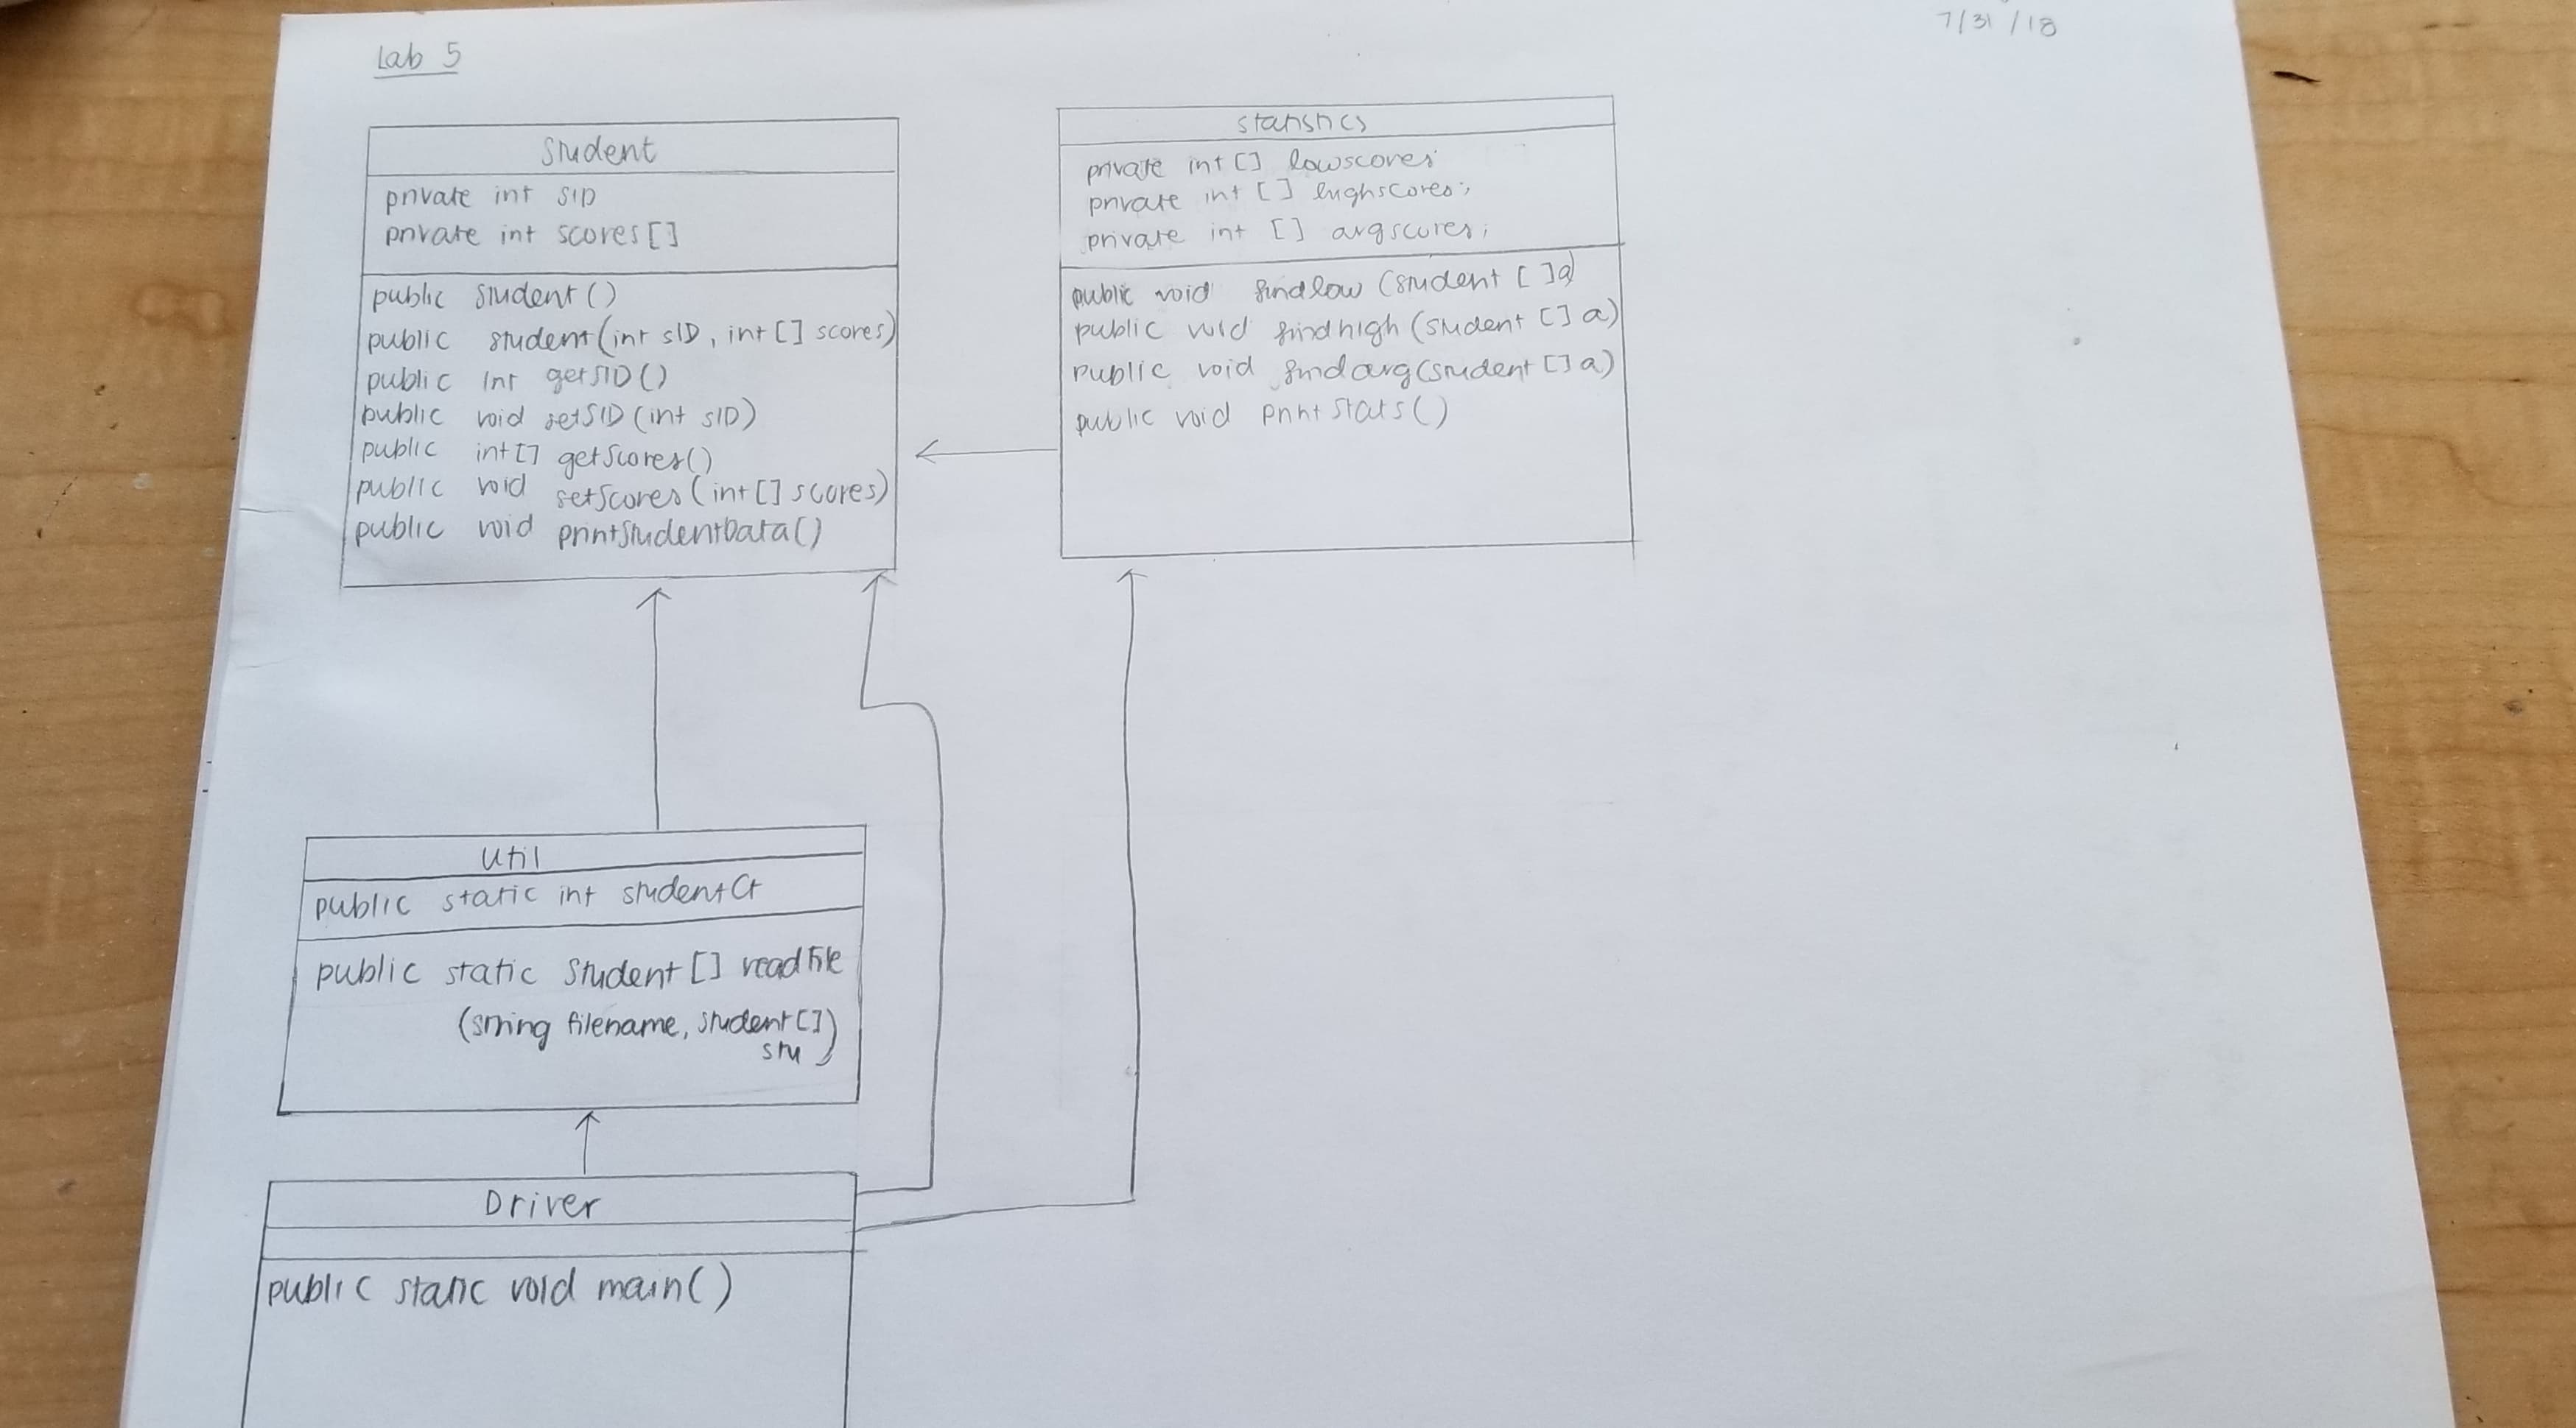 7/31/18
Lab 5
Student
private int SID
private int scores[]
public Student()
public student(int SID, int[] scores)
public int getSID()
public void setSID(int SID)
public int[] getScores()
public void setScores(int[] scores)
public void printStudentData()
statistics
private int[] lowscores;
private int [] highscores;
private int [] avgscores;
public void findlow (student [ ]a)
public void findhigh (student [] a)
public void findavg(student [] a)
public void printStats()
Util
public static int studentCt
public static Student[] readFile
(string filename, student[]
stu)
Driver
public static void main()